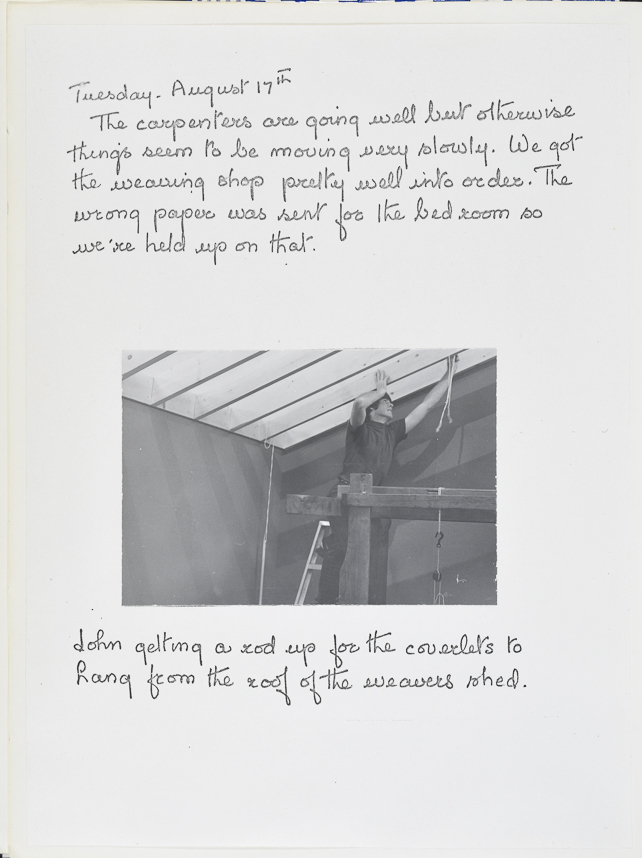 Tuesday. August 17th
The carpenters are going well but otherwise
things seem to be moving very slowly. We got
the weaving shop pretty well into order. The
wrong paper was sent for the bedroom so
we're held up on that.
John getting a rod up for the coverlets to
hang from the roof of the weavers shed.